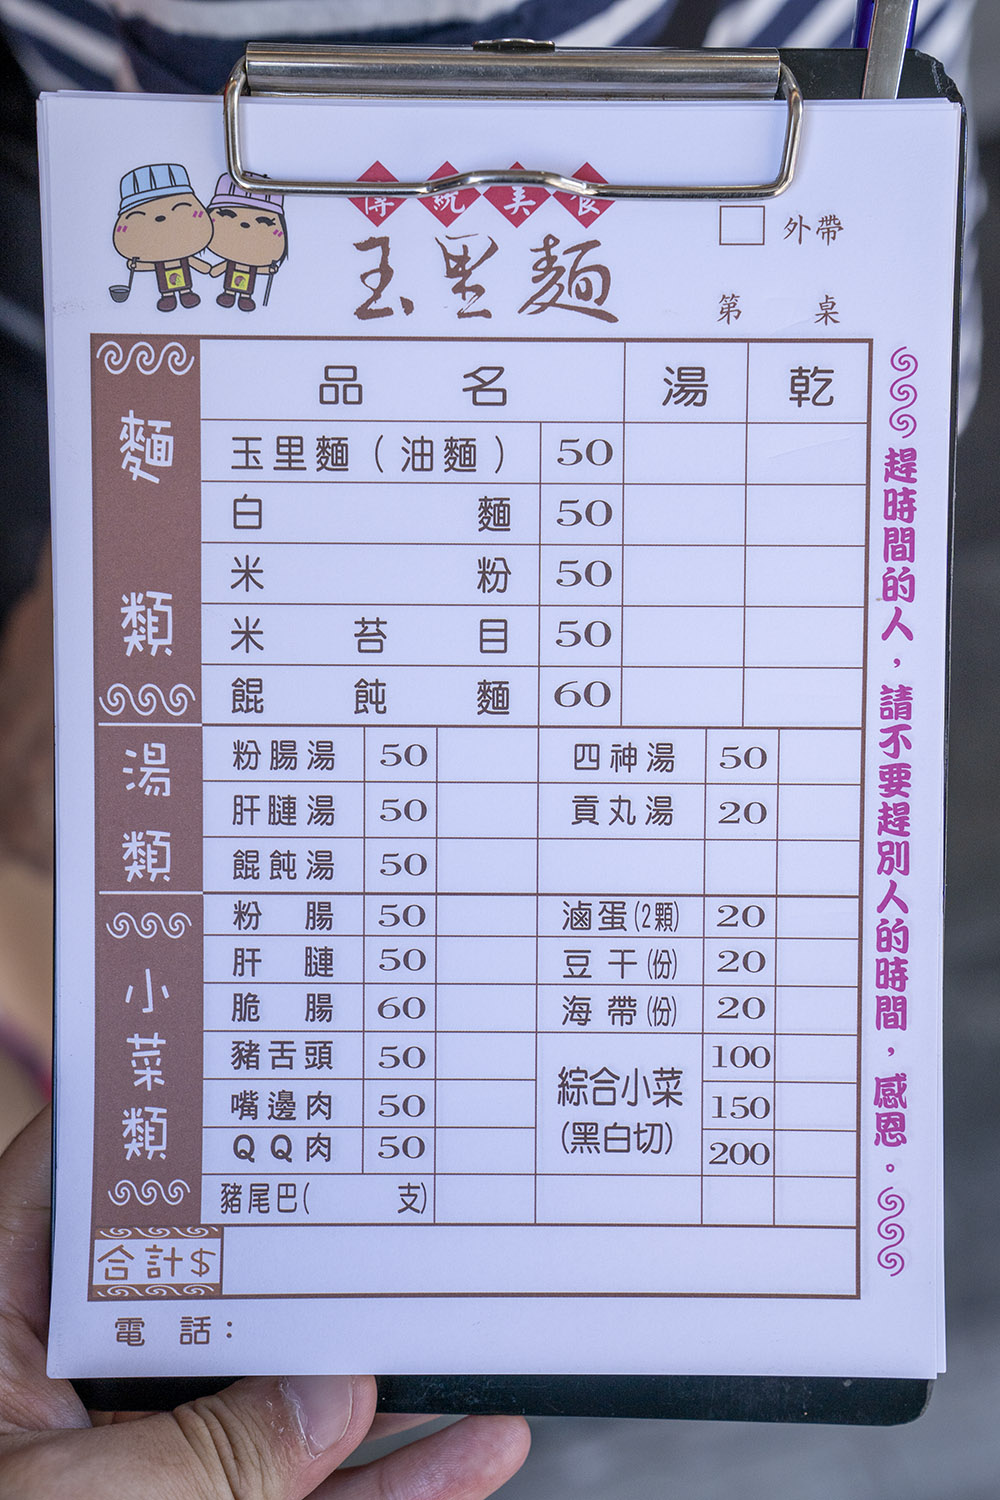 傳統美食
玉里麵
外帶
第 桌
品名 湯 乾
麵類
玉里麵(油麵) 50
白麵 50
米粉 50
米苔目 50
餛飩麵 60
湯類
粉腸湯 50 四神湯 50
肝腱湯 50 貢丸湯 20
餛飩湯 50
小菜類
粉腸 50 滷蛋(2顆) 20
肝腱 50 豆干(份) 20
脆腸 60 海帶(份) 20
豬舌頭 50 綜合小菜(黑白切) 100
嘴邊肉 50 150
QQ肉 50 200
豬尾巴( 支)
合計$
電話：
趕時間的人，請不要趕別人的時間，感恩。